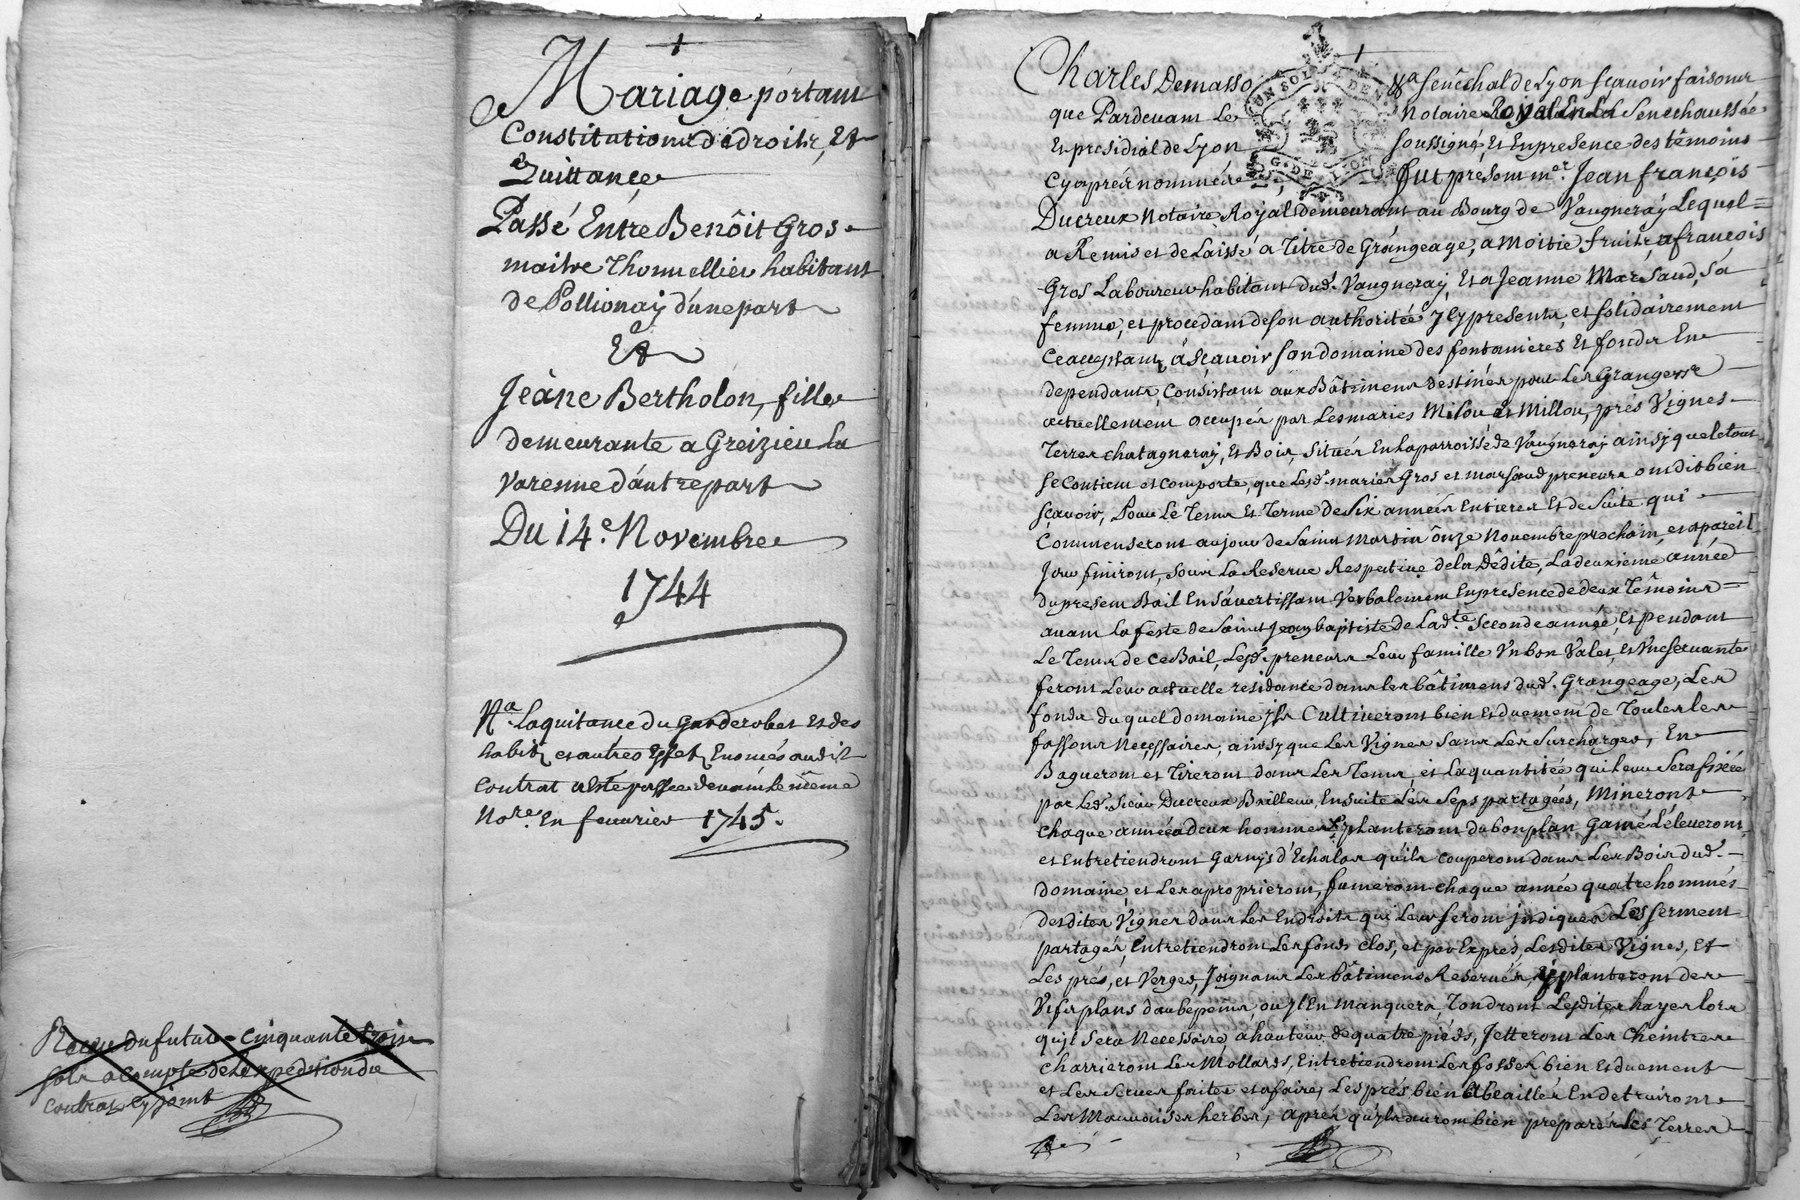 Mariage portant
Constitution de droits, Et
Quittance
Passé Entre Benôit Gros
maitre Thonnellier habitant
de Pollionay d'une part
Et
Jeâne Bertholon, fille
demeurante a Greizieu La
Varenne d'autre part
Du 14.e Novembre
1744
Na. La quitance du Garderobes et des
habits et autres Effets Enoncés audit
contrat a esté passée devant le même
Nore. En feuurier 1745.
Receu du futur cinquante trois
sols a compte de L'expedition du
contrat cy joint
Charles Demasso
Sénêchal de Lyon scavoir faisons
que Pardevant Le
Notaire Royal En La Senechaussée
Et presidial de Lyon
soussigné, Et En presence des têmoins
cy aprés nommés
fut present me. Jean françois
UN SOL
G. DE LYON
Ducreux Notaire Royal demeurant au Bourg de Vaugneray Lequel
a Remis et de Laissé a Titre de Grangeage, a moitié fruits, a françois
Gros Laboureur habitant dud. Vaugneray, Et a Jeanne Marsaud, sa
femme, et procedant de son authoritée jcy presents, et solidairement
ceacceptants, ásçavoir son domaine des fontanieres Et fonds En
dependants, Consistant aux Bâtimens destinés pour Les Grangers
actuellement occupés par Les mariés Milou et Millou, prés Vignes
Terres chatagneray, Et Bois, Situés En la parroisse de Vaugneray ainsy que le tout
se Contient et comporte, que Lesd. mariés Gros et marsaud preneurs ont dit bien
sçavoir, Pour Le Tems Et Terme de Six années Entieres Et de Suite qui
Commenseront au jour de Saint Martin ônze Novembre prochain, et a pareil
Jour finiront, sous La Reserve Respective de la Dêdite, La deuxieme année
du present Bail En S'avertissant Verbalement En presence de deux Têmoins
avant la feste de Saint Jean baptiste de Lad.te Seconde année, Et pendant
Le Tems de Ce Bail, Lesd. preneurs Leur famille Un bon Valet, et Une servante
feront Leur actuelle residance dans les bâtimens dud. Grangeage, Les
fonds duquel domaine jls Cultiveront bien Et duement de Toutes les
fassons Necessaires, ainsy que Les Vignes sans Les Surcharger, En
Bagueront et Tireront dans Les Tems, et La quantitée qui Leur Sera fixée
par Led. Sieur Ducreux Bailleur Ensuite Les Seps partagées, Mineront
chaque année a deux hommes, planteront du bon plan Gamé L'éleveront,
et Entretiendront Garnys d'Echalas qu'ils couperont dans Les Bois dud.
domaine, et Les aproprieront, fumeront chaque année quatre hommés
desdites Vignes dans Les Endroits qui Leur seront jndiqués Les serment
partagés, Entretiendront Les fonds clos, et par Exprés, Lesdites Vignes, Et
Les prés, et Verger, Joignans Les bâtimens Reservés, y planteront des
Vifs plans d'aubepeins, ou jl En manquera, Tondront Lesdites hayes lors
qu'jl sera Necessaire, a hauteur de quatre piéds, Jetteront Les Cheintres
charrieront Les Mollards, Entretiendront Les fossés bien Et duement
et Les Serves faites et a faire, Les prés bien Abeaillés En detruiront
Les Mauvaises herbes, aprés qu'jls auront bien preparés les Terres